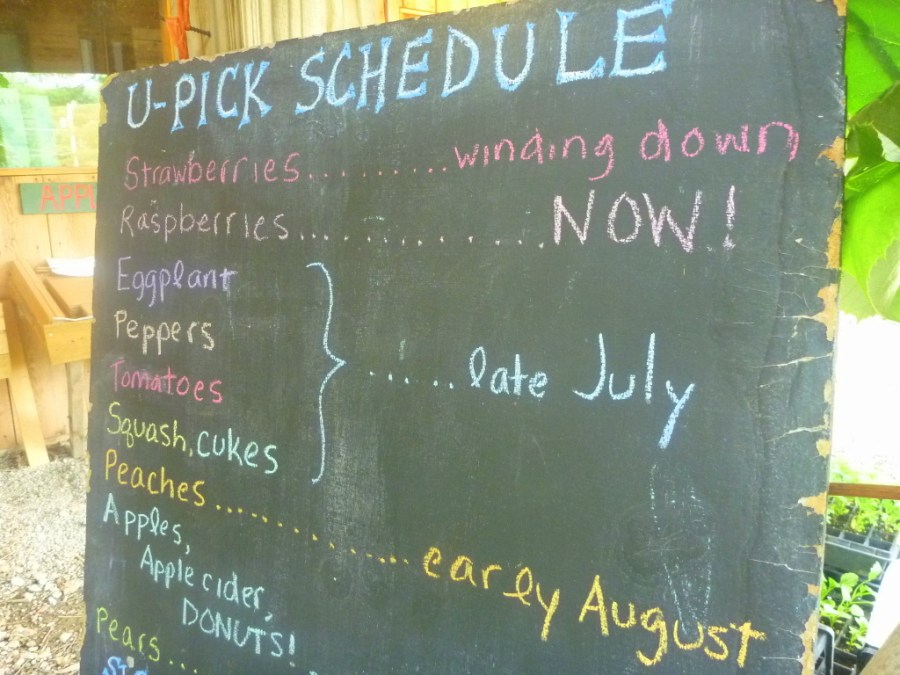 U-PICK SCHEDULE
Strawberries.........winding down
Raspberries..............NOW!
Eggplant
Peppers
Tomatoes
......late July
Squash, cukes
Peaches..............early August
Apples,
Apple cider,
DONUTS!
Pears....
APPL